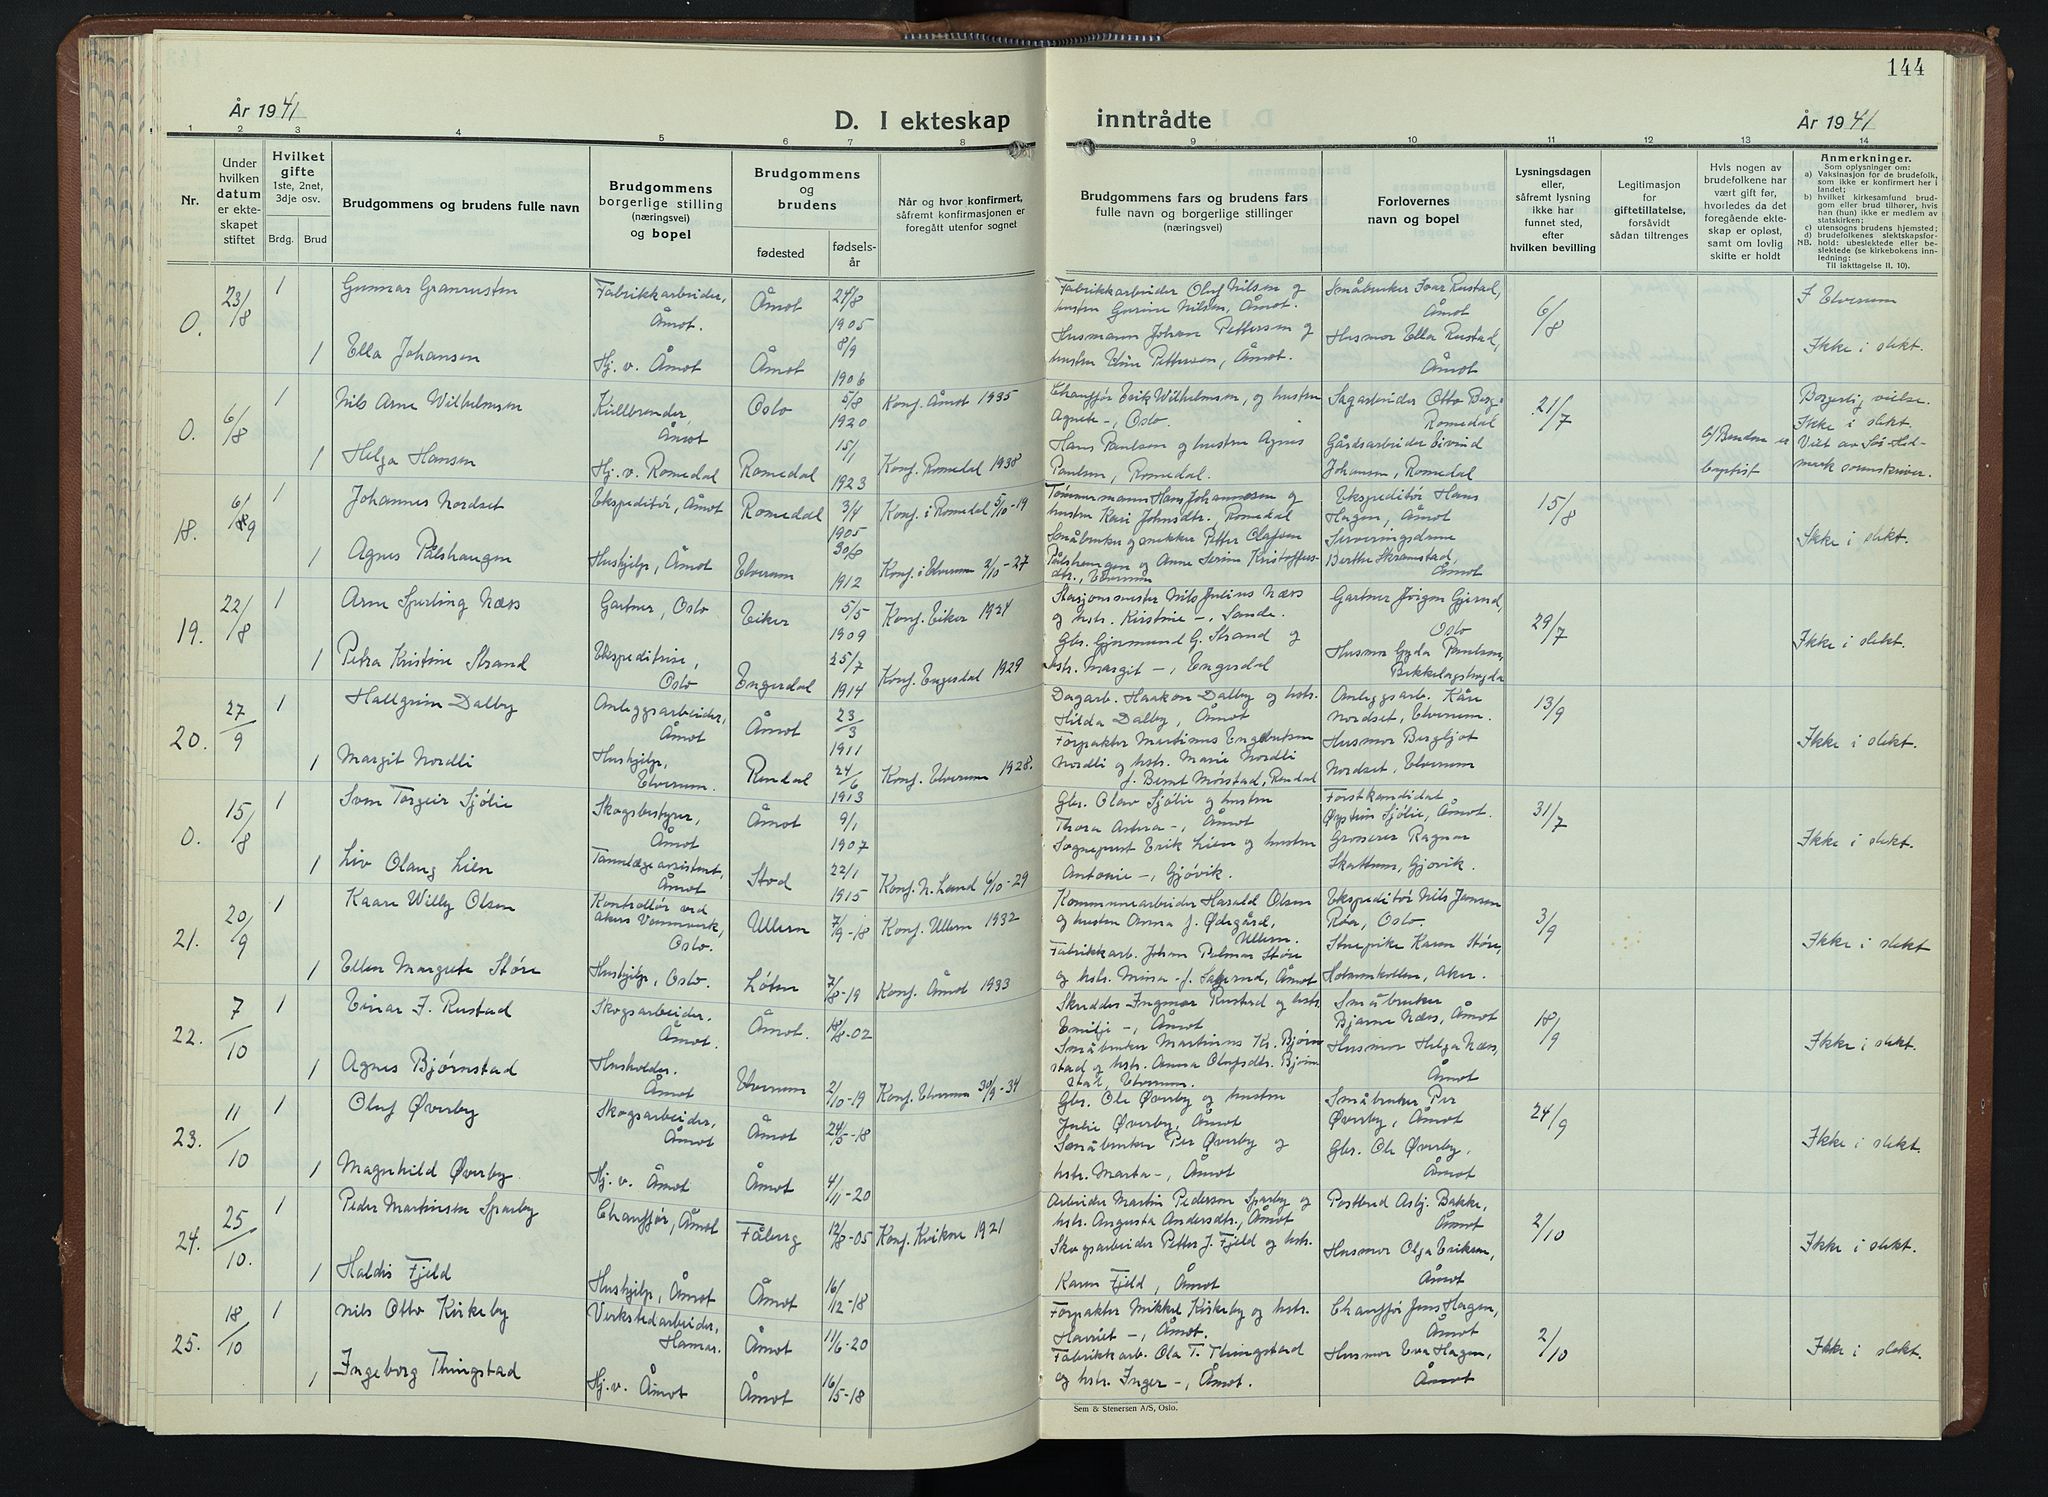 144
År 1941
D. I ekteskap
inntrådte
År 1941
1 2 3 4 5 6 7 8 9 10 11 12 13 14
Nr.
Under hvilken datum er ekteskapet stiftet
Hvilket gifte
1ste, 2net, 3dje osv.
Brdg. Brud
Brudgommens og brudens fulle navn
Brudgommens borgerlige stilling (næringsvei) og bopel
Brudgommens og brudens
fødested
fødselsår
Når og hvor konfirmert, såfremt konfirmasjonen er foregått utenfor sognet
Brudgommens fars og brudens fars
fulle navn og borgerlige stillinger
(næringsvei)
Forlovernes
navn og bopel
Lysningsdagen eller, såfremt lysning ikke har funnet sted, efter hvilken bevilling
Legitimasjon for giftetillatelse, forsåvidt sådan tiltrenges
Hvis nogen av brudefolkene har vært gift før, hvorledes da det foregående ekteskap er opløst, samt om lovlig skifte er holdt
Anmerkninger.
Som oplysninger om:
a) Vaksinasjon for de brudefolk, som ikke er konfirmert her i landet;
b) hvilket kirkesamfund brudgom eller brud tilhører, hvis han (hun) ikke er medlem av statskirken;
c) utensogns brudens hjemsted;
d) brudefolkenes slektskapsforhold:
NB. ubeslektede eller beslektede (se kirkebokens innledning:
Til iakttagelse II, 10).
0. 23/8 1 Gunnar Granrusten Fabrikkarbeider, Åmot. Åmot 24/8 1905
Fabrikkarbeider Oluf Nilsen og hustru Gurine Nilsen, Åmot. Småbruker Ivar Rustad, Åmot 6/8 F Elverum
1 Ella Johansen Hj. v. Åmot Åmot 8/9 1906
Husmann Johan Pettersen og hustru Pettersen, Åmot. Husmor Ella Rustad, Åmot Ikke i slekt.
0. 6/8 1 Nils Arne Wilhelmsen Kullbrenner, Åmot Oslo 5/8 1920 Konf. Åmot 1935
Chauffør Erik Wilhelmsen, og hustru Agnete -, Oslo. Sagarbeider Otto Berg, Romedal 21/7 Borgerlig vielse. Ikke i slekt.
1 Helga Hansen Hj. v. Romedal Romedal 15/1 1923 Konf. Romedal 1938
Hans Paulsen og hustru Agnes Paulsen, Romedal. Gårdsarbeider Eivind Johansen, Romedal b/ Bruden er baptist Viet av Sør-Hedmark sorenskriver.
18. 6/9 1 Johannes Nordset Ekspeditør, Åmot Romedal 3/4 1905 Konf. i Romedal 5/10-19
Tømmermann Hans Johannesen og hustru Kari Johnsdtr., Romedal Ekspeditør Hans Hagen, Åmot 15/8
1 Agnes Pålshaugen Hushjelp, Åmot Elverum 30/8 1912 Konf. i Elverum 2/10-27
Småbruker og snekker Petter Olafsen Pålshaugen og Anne Serine Kristoffersdtr., Elverum Serveringsdame Berthe Skramstad, Åmot Ikke i slekt.
19. 22/8 1 Arne Sperling Næss Gartner, Oslo Eiker 5/5 1909 Konf. Eiker 1924
Stasjonsmester Nils Julius Næss og hstr. Kirstine -, Sande. Gartner Jørgen Gjerud, Oslo 29/7
1 Petra Kristine Strand Ekspeditrise, Oslo Engerdal 25/7 1914 Konf. Engerdal 1929
Gbr. Gjermund G. Strand og hstr. Margit -, Engerdal Husmor Gyda Paulsen, Bekkelagshøgda Ikke i slekt.
20. 27/9 1 Hallgrim Dalby Anleggsarbeider, Åmot Åmot 23/3 1911
Dagarb. Haakon Dalby og hstr. Hilda Dalby, Åmot Anleggsarb. Kåre Nordset, Elverum. 13/9
1 Margit Nordli Hushjelp, Elverum. Rendal 24/6 1913 Konf. Elverum 1928.
Forpakter Martinus Engebretsen Nordli og hstr. Marie Nordli f. Bernt Mørstad, Rendal Husmor Bergljot Nordset, Elverum Ikke i slekt.
0. 15/8 1 Sven Torgeir Sjølie Skogbestyrer, Åmot Åmot 9/1 1907
Gbr. Olav Sjølie og hustru Thora Astra -, Åmot Forstkandidat Øystein Sjølie, Åmot. 31/7
1 Liv Olaug Lien Tannlægeassistent, Åmot Stod 22/1 1915 Konf. N. Land 6/10-29
Sogneprest Erik Lien og hustru Antonie -, Gjøvik. Grosserer Ragnar Skattum, Gjøvik. Ikke i slekt.
21. 20/9 1 Kaare Willy Olsen Kontrollør ved Akers Vannverk, Oslo. Ullern 7/9-18 Konf. Ullern 1932
Kommunearbeider Harald Olsen og hustru Anna f. Ødegård, Ullern. Ekspeditør Nils Jansen Røa, Oslo. 3/9
1 Ellen Margrete Støre Hushjelp, Oslo. Løten 7/8-19 Konf. Åmot 1933
Fabrikkarb. Johan Palmar Støre og hstr. Mina - f. Sagerud, Åmot Stuepike Karen Støre, Holmenkollen, Aker. Ikke i slekt
22. 7/10 1 Einar I. Rustad Skogsarbeider. Åmot. Åmot. 18/8-02
Skredder Ingmar Rustad og hstr. Emilje -, Åmot Småbruker Bjarne Næss, Åmot 18/9
1 Agnes Bjørnstad Husholder. Åmot Elverum 2/10-19 Konf. Elverum 30/9-34
Småbruker Martinius Kr. Bjørnstad og hstr. Anna Olufsdtr. Bjørnstad, Elverum. Husmor Helga Næss, Åmot Ikke i slekt.
23. 11/10 1 Oluf Øverby Skogsarbeider, Åmot Åmot 24/5-18
Gbr. Ole Øverby og hustru Julie Øverby, Åmot Småbruker Per Øverby, Åmot 24/9
1 Magnhild Øverby Hj. v. Åmot Åmot 4/11-20
Småbruker Per Øverby og hstr. Marta -, Åmot Gbr. Ole Øverby, Åmot Ikke i slekt.
24. 25/10. 1 Peder Martinsen Sparby Chauffør, Åmot Fåberg 12/8-05 Konf. Kvikne 1921
Arbeider Martin Pederson Sparby og hstr. Augusta Andersdtr., Åmot Postbud Asbj. Bakke, Åmot 2/10
1 Haldis Fjeld Hushjelp, Åmot Åmot 16/12-18
Skogsarbeider Petter J. Fjeld og hstr. Karen Fjeld, Åmot Husmor Olga Eriksen, Åmot Ikke i slekt.
25. 18/10 1 Nils Otto Kirkeby Verkstedarbeider, Hamar. Åmot 11/6-20
Forpakter Mikkel Kirkeby og hstr. Harriet -, Åmot. Chauffør Jens Hagen, Åmot 2/10
1 Ingeborg Thingstad Hj. v. Åmot Åmot 16/5-18
Fabrikkarb. Ola T. Thingstad og hstr. Inger -, Åmot. Husmor Eva Hagen, Åmot Ikke i slekt.
Sem & Stenersen A/S, Oslo.